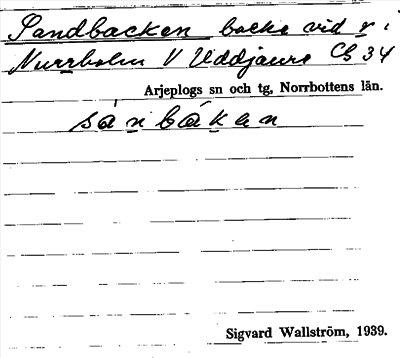 Sandbacken backe vid v.
Nurrholm V Uddjaure Cb 34
Arjeplogs sn och tg, Norrbottens län.
sánbákan
Sigvard Wallström, 1939.